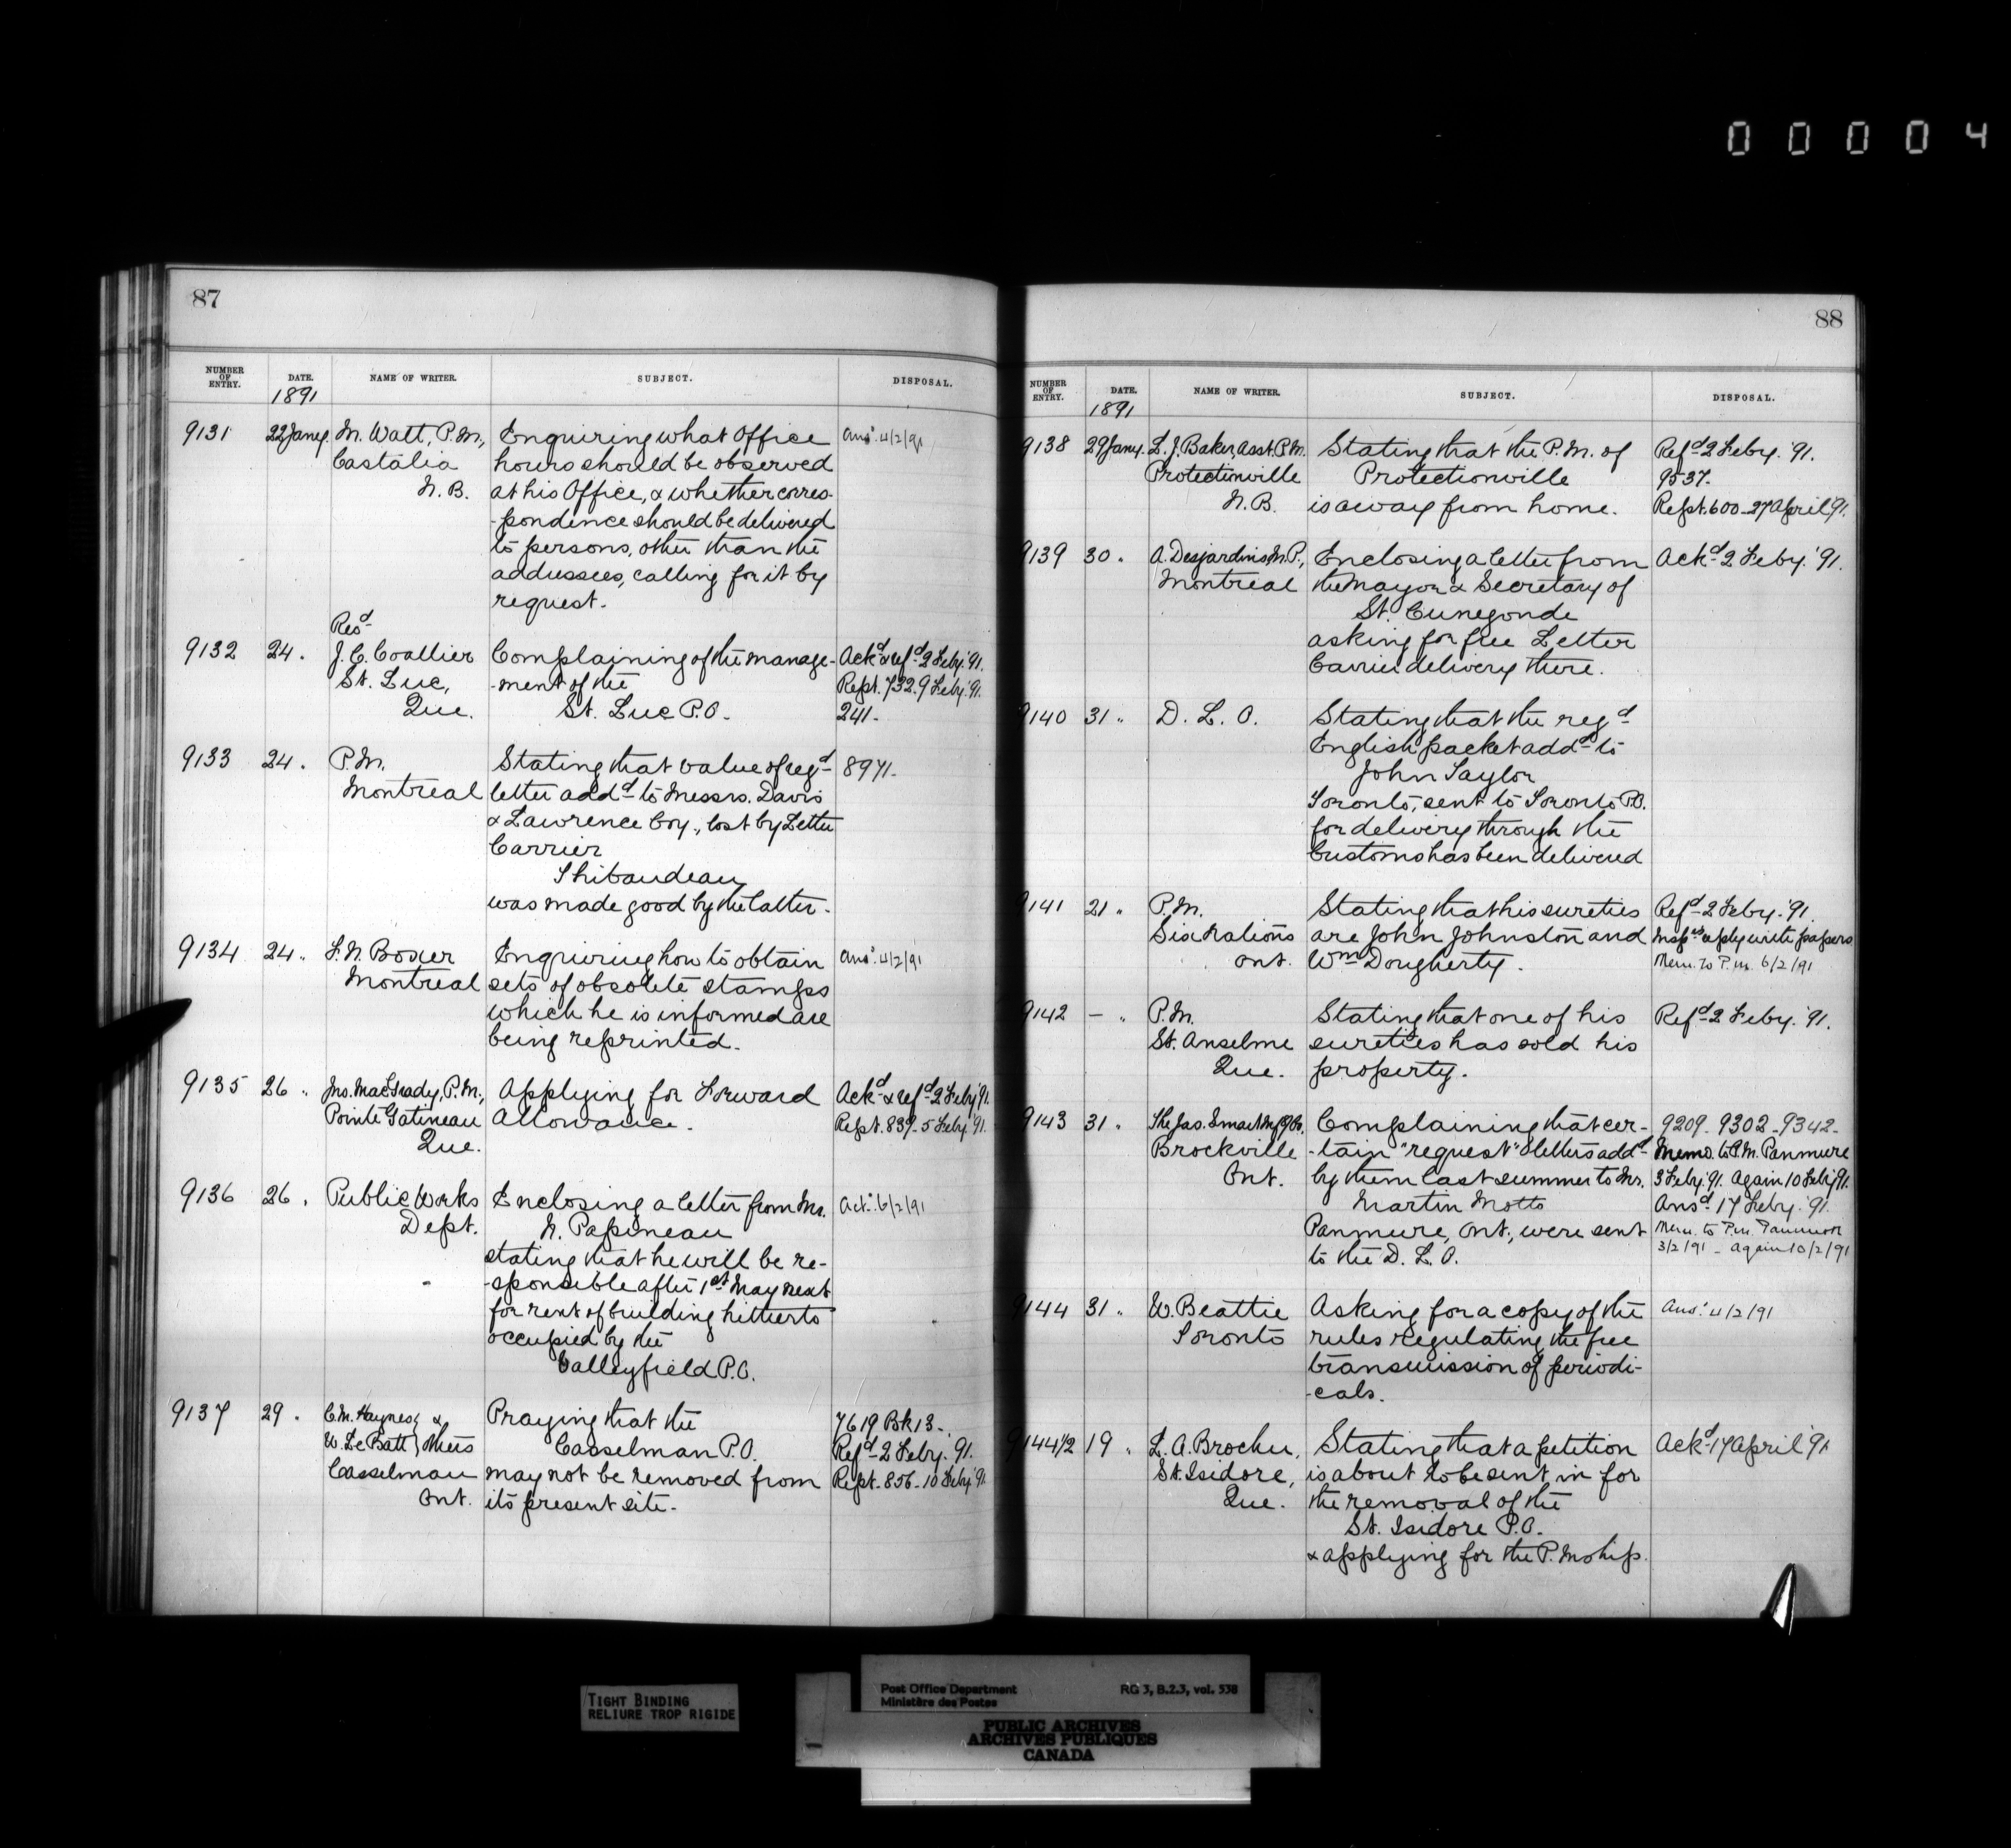 00004
87
NUMBER OF ENTRY. DATE. NAME OF WRITER. SUBJECT. DISPOSAL.
1891
9131 22 Jany. M. Watt, P.M., Enquiring what Office Ans. 4/2/91
Castalia hours should be observed
N.B. at his Office, & whether corres-
-pondence should be delivered
to persons, other than the
addressees, calling for it by
request.
Resd
9132 24. J.C. Coallier Complaining of the manage- Ackd & refd 2 Feby. '91.
St. Luc, -ment of the Rept. 732. 9 Feby. '91.
Que. St. Luc P.O. 241.
9133 24. P.M. Stating that value of regd 8971.
Montreal letter addd to Messrs. Davis
& Lawrence Coy., lost by Letter
Carrier
Thibaudeau
was made good by the latter.
9134 24.. F.N. Boxer Enquiring how to obtain Ans. 4/2/91
Montreal sets of obsolete stamps
which he is informed are
being reprinted.
9135 26 .. Jno. MacGrady, P.M., Applying for Forward Ackd & refd 2 Feby '91.
Pointe Gatineau Allowance. Rept. 839. 5 Feby '91.
Que.
9136 26. Public Works Enclosing a letter from Mr. Act. 6/2/91
Dept. N. Papineau
stating that he will be re-
-sponsible after 1st May next
for rent of building hitherto
occupied by the
Valleyfield P.O.
9137 29. C.M. Haynes, & Praying that the 7619 Bk 13.
W. LeBatt, others Casselman P.O. Refd 2 Feby. 91.
Casselman may not be removed from Rept. 856. 10 Feby '91.
Ont. its present site.
88
NUMBER OF ENTRY. DATE. NAME OF WRITER. SUBJECT. DISPOSAL.
1891
9138 29 Jany. L.J. Baker, Asst. P.M. Stating that the P.M. of Refd 2 Feby. '91.
Protectionville Protectionville 9537.
N.B. is away from home. Rept. 600. 27 April 91.
9139 30. A. Desjardins, M.P., Enclosing a letter from Ackd 2 Feby. '91.
Montreal the Mayor & Secretary of
St. Cunegonde
asking for free Letter
Carrier delivery there.
9140 31.. D.L.O. Stating that the regd
English packet addd to
John Taylor
Toronto, sent to Toronto P.O.
for delivery through the
Customs has been delivered
9141 21.. P.M. Stating that his sureties Refd 2 Feby. '91.
Six Nations are John Johnston and Insprs reply with papers
Ont. Wm Dougherty. Mem. to P.M. 6/2/91
9142 - .. P.M. Stating that one of his Refd 2 Feby. '91.
St. Anselme sureties has sold his
Que. property.
9143 31. The Jas. Smart Mfg Co., Complaining that cer- 9209. 9302. 9342.
Brockville -tain "request" letters addd Memo. to P.M. Panmure
Ont. by them last summer to Mr. 3 Feby '91. Again 10 Feby 91.
Martin Motts Ansd 17 Feby. '91.
Panmure, Ont., were sent Mem. to P.M. Panmure
to the D.L.O. 3/2/91 - again 10/2/91
9144 31.. W. Beattie Asking for a copy of the Ans. 4/2/91
Toronto rules regulating the free
transmission of periodi-
-cals.
9144 1/2 19 .. L.A. Brochu, Stating that a petition Ackd 17 April '91
St. Isidore, is about to be sent in for
Que. the removal of the
St. Isidore P.O.
& applying for the P. Mship.
TIGHT BINDING
RELIURE TROP RIGIDE
Post Office Department RG 3, B.2.3, vol. 538
Ministère des Postes
PUBLIC ARCHIVES
ARCHIVES PUBLIQUES
CANADA